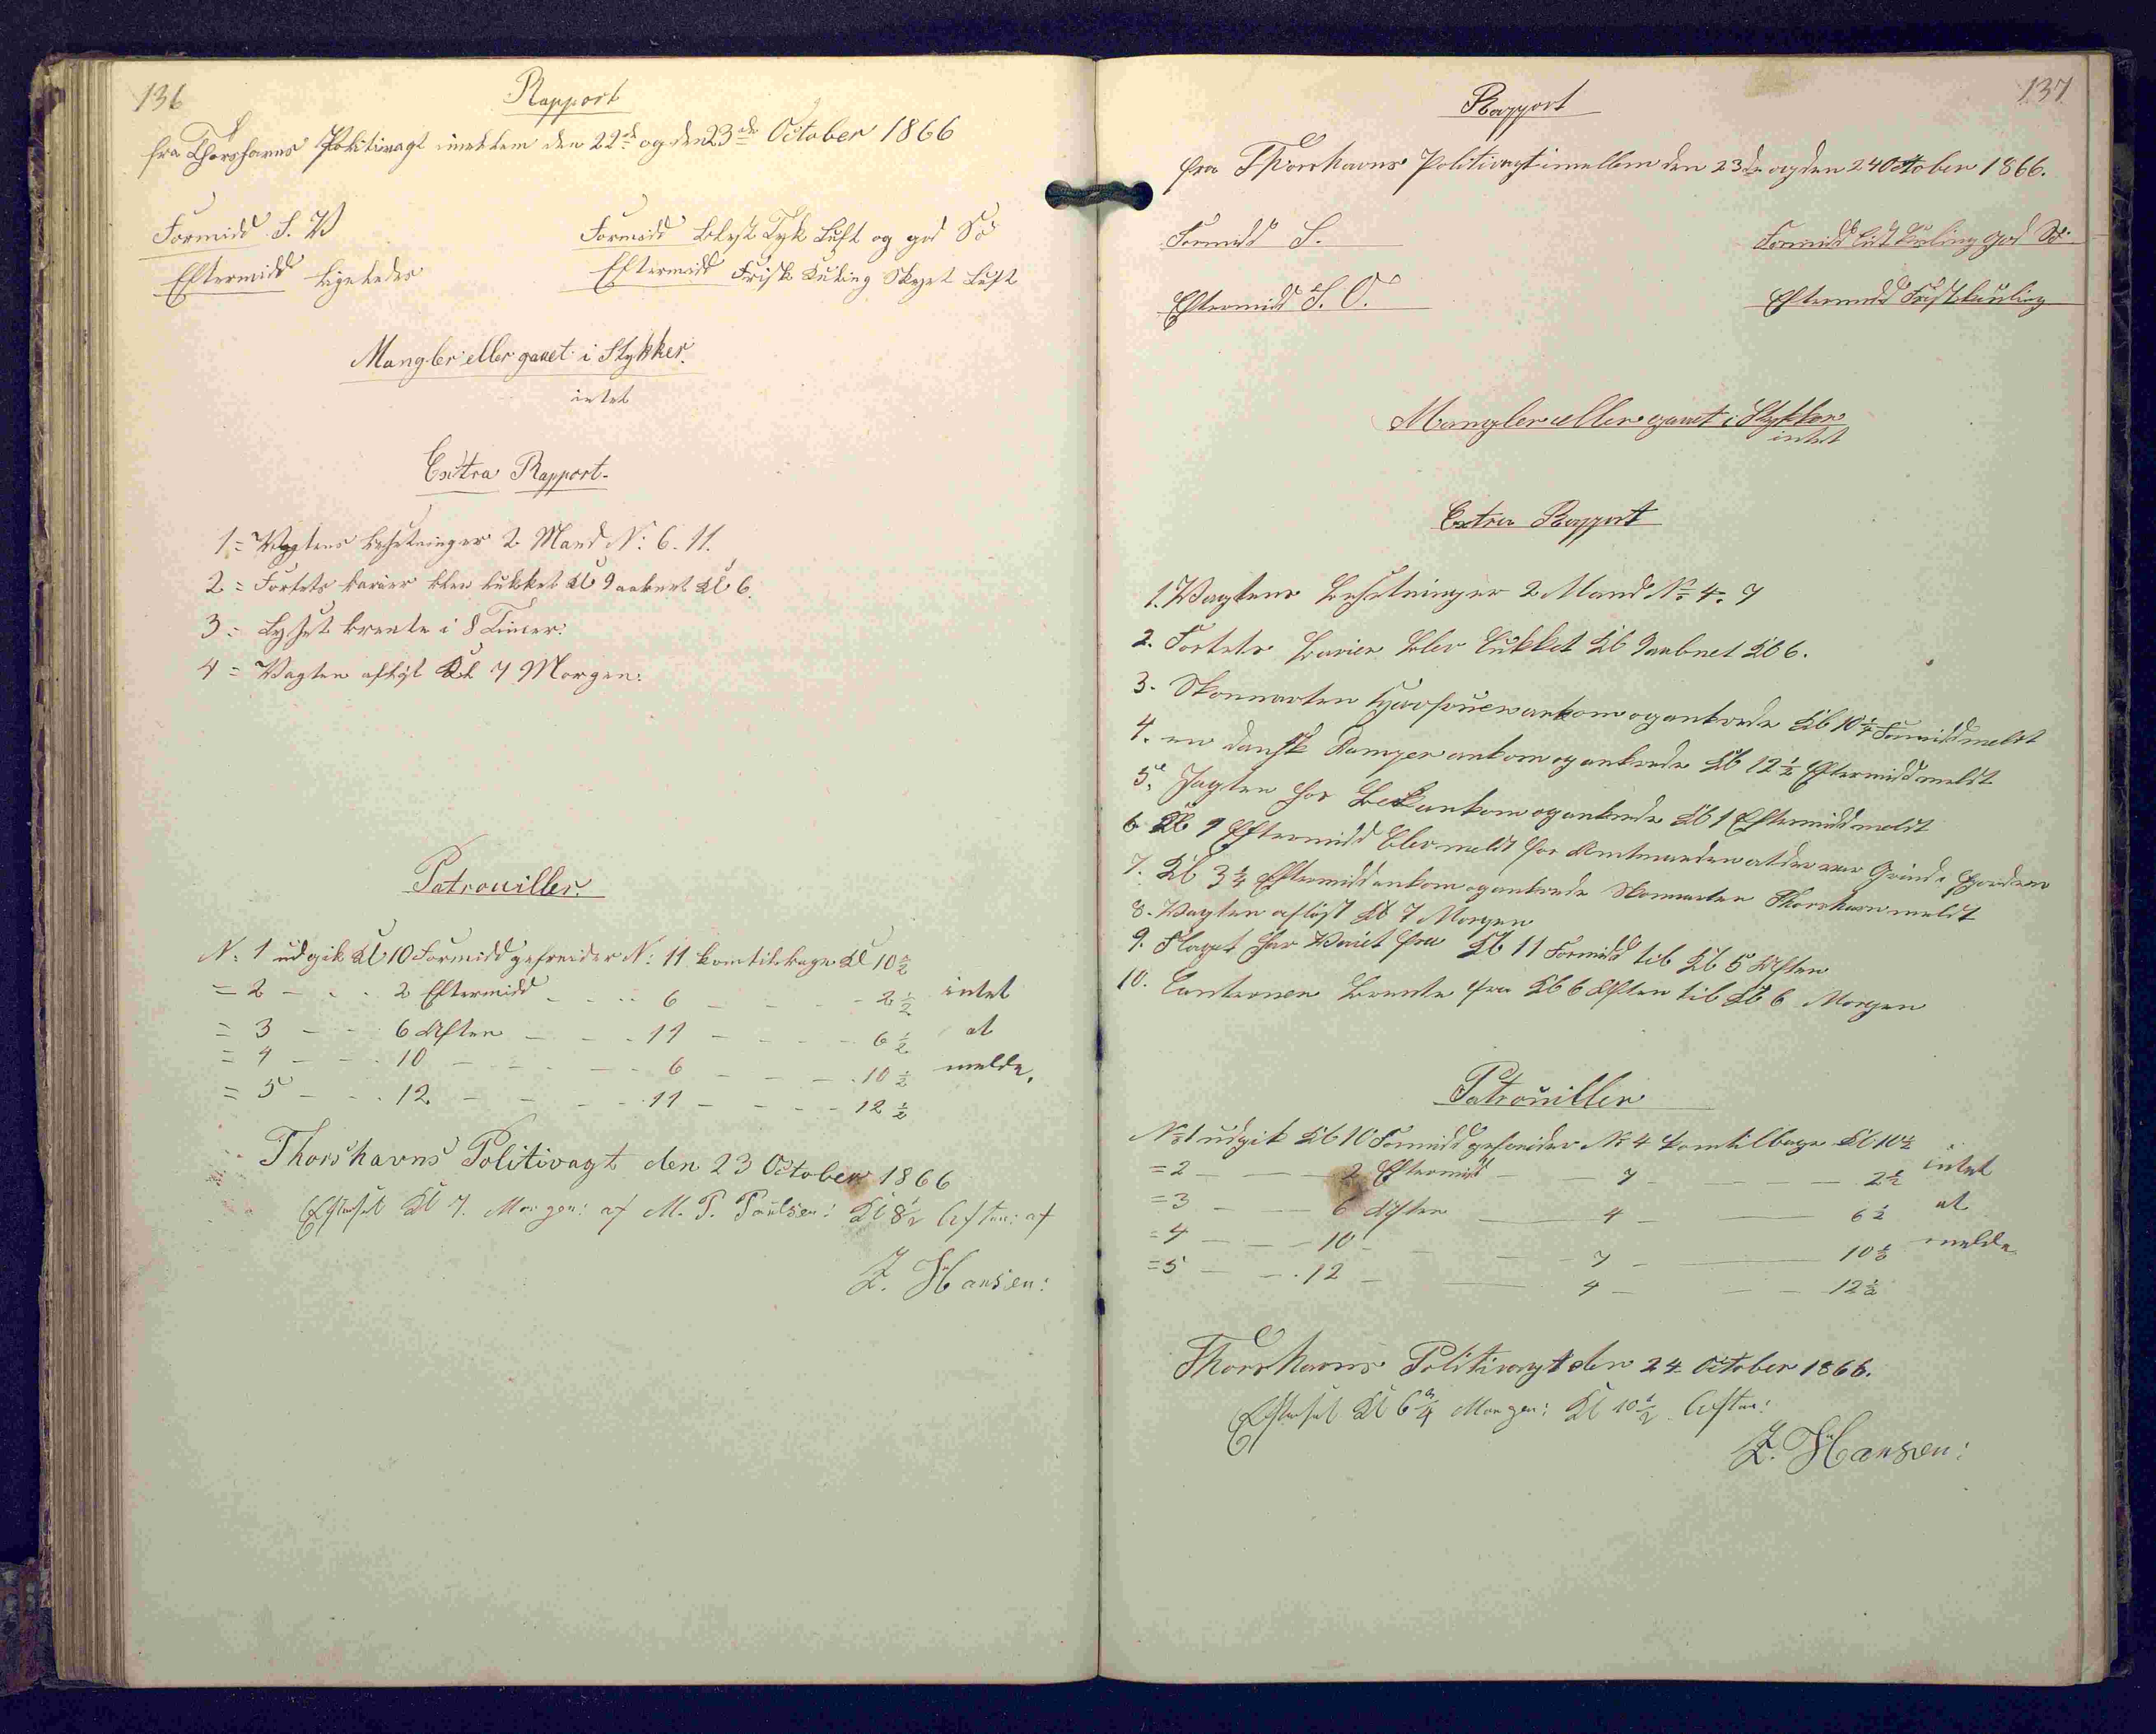 136
Rapport
fra Thorshavns Politivagt imellem den 22de og den 23de October 1866
Formidd S. V
Formidd Blest Tyk Luft og god Sø
Eftermidd ligeledes
Eftermidd Frisk Kuling Skyet Luft
Mangler eller gaaet i Stykker.
intet
Extra Rapport.
1 = Vagtens Besetninger 2 Mand N: 6. 11.
2 = Fortets barier blev lukket Kl 9 aabnet Kl 6.
3 = Lyset brente i 8 Timer.
4 = Vagten afløst Kl 7 Morgen.
Patrouiller.
N: 1 udgik Kl 10 Formidd gefreider N: 11 kom tilbage Kl 10 1/2
= 2 - - - 2 Eftermidd - - - 6 - - - 2 1/2 intet
= 3 - - - 6 Aften - - - 11 - - - 6 1/2 at
= 4 - - - 10 - - - 6 - - - 10 1/2 melde.
= 5 - - - 12 - - - 11 - - - 12 1/2
Thorshavns Politivagt den 23 October 1866
Efterset Kl 7. Morgen: af M. P. Poulsen: Kl 8 1/2 Aften: af
Z. Hansen:
137
Rapport
fra Thorshavns Politivagt imellem den 23de og den 24 October 1866.
Formidd S.
Formidd Lidt Kuling god Sø
Eftermidd S. O.
Eftermidd Frisk kuling
Mangler eller gaaet i Stykker
intet
Extra Rapport
1. Vagtens Besetninger 2 Mand No 4. 7
2. Fortets Barier blev lukket Kl 9 aabnet Kl 6.
3. Skonnarten ankom og ankrede Kl 10 1/4 Formidd meldt
4. en dansk Damper ankom og ankrede Kl 12 1/2 Eftermidd meldt
5. Jagten for ankom og ankrede Kl 1 Eftermidd meldt
6 Kl 1 Eftermidd blev meldt for Amtmanden at der var Grind i fjorden
7. Kl 3 1/4 Eftermidd ankom og ankrede Skonnarten Thorshavn meldt
8. Vagten afløst Kl 7 Morgen
9. Flaget har Vaiet fra Kl 11 Formidd til Kl 5 Aften
10. Lanternen brente fra Kl 6 Aften til Kl 6 Morgen
Patrouiller
No 1 udgik Kl 10 Formidd gefreider No 4 kom tilbage Kl 10 1/2
= 2 - - 2 Eftermidd - - 7 - - - 2 1/2 intet
= 3 - - 6 Aften - 4 - - 6 1/2 at
= 4 - - 10 - - 7 - - 10 1/2 melde
= 5 - - 12 - - 4 - - - 12 1/2
Thorshavns Politivagt den 24 October 1866.
Efterset Kl 6 3/4 Morgen: Kl 10 1/2 Aften:
Z. Hansen: